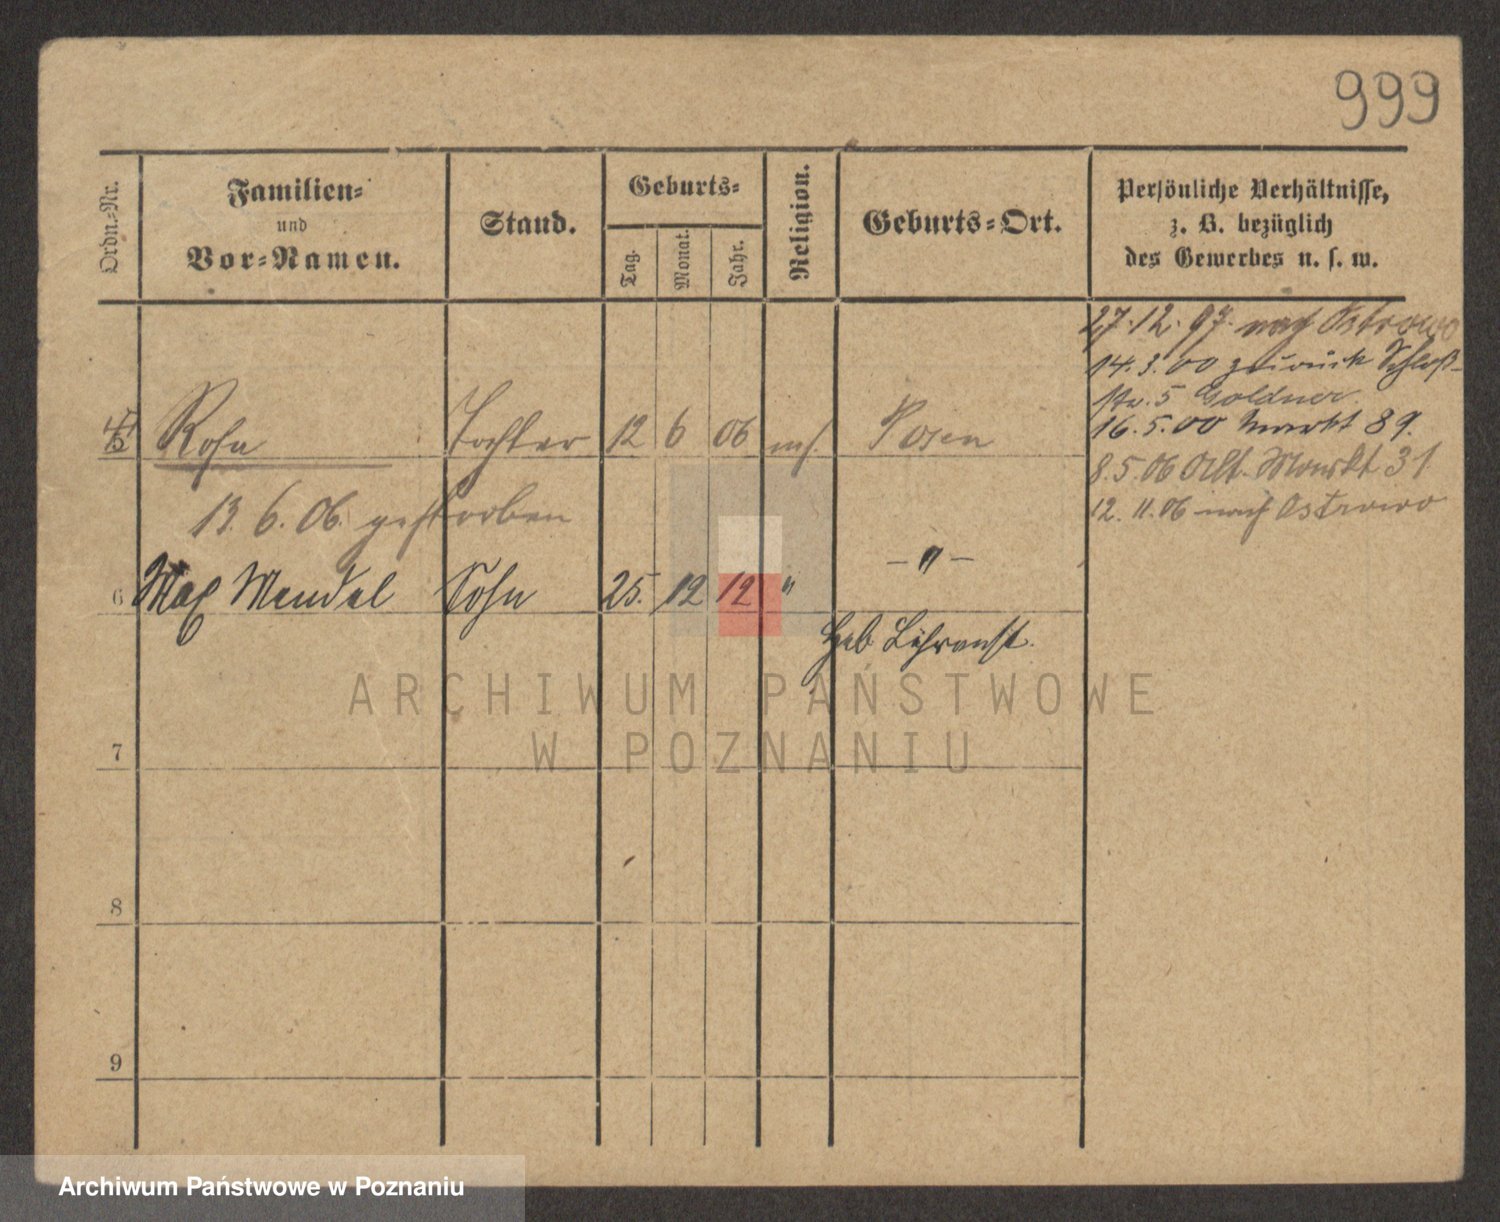 999
Ordn.-Nr.
Familien-
und
Vor-Namen.
Stand.
Geburts-
Tag.
Monat.
Jahr.
Religion.
Geburts-Ort.
Persönliche Verhältnisse,
z. B. bezüglich
des Gewerbes u. s. w.
27.12.97. nach Ostrowo
14.3.00 zurück Schloß-
str. 5 Goldner.
16.5.00 Markt 89.
8.5.06 Alt. Markt 31
12.11.06 nach Ostrowo
5 Rosa Tochter 12 6 06 mos. Posen
13. 6. 06. gestorben
6 Max Mendel Sohn 25. 12 12 " -"-
Heb
ARCHIWUM PAŃSTWOWE
W POZNANIU
7
8
9
Archiwum Państwowe w Poznaniu